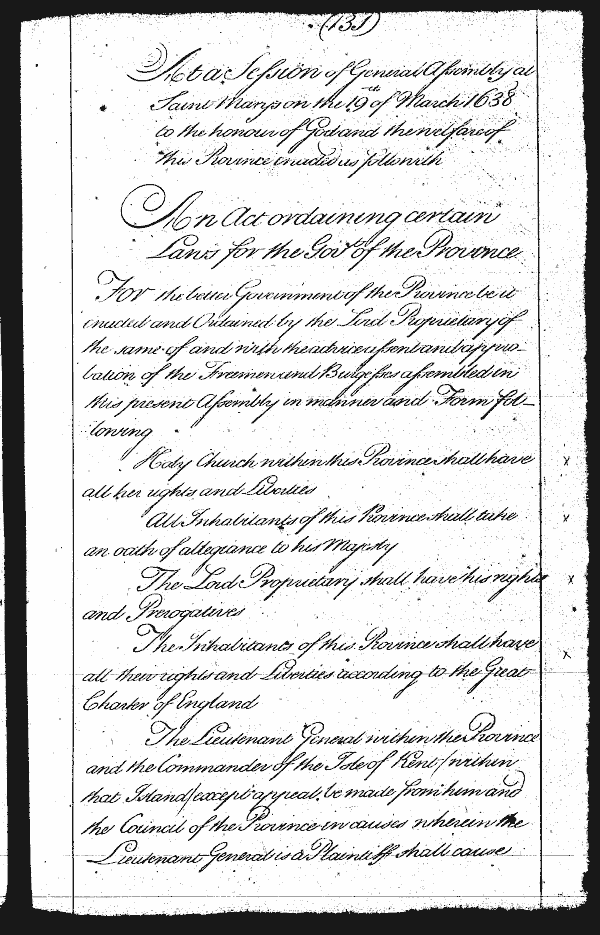 (131)
At a Session of General Assembly at
Saint Marys on the 19th of March 1638
to the honour of God and the welfare of
this Province enacted as followith
An Act ordaining certain
Laws for the Govt of the Province
For the better Government of the Province be it
enacted and Ordained by the Lord Proprietary of
the same of and with the advice assent and appro-
bation of the Freemen and Burgesses assembled in
this present Assembly in manner and Form fol-
lowing
Holy Church within this Province shall have
all her rights and Liberties
All Inhabitants of this Province shall take
an oath of allegiance to his Majesty
The Lord Proprietary shall have his rights
and Prerogatives
The Inhabitants of this Province shall have
all their rights and Liberties according to the Great
Charter of England
The Lieutenant General within the Province
and the Commander of the Isle of Kent (within
that Island) except appeal be made from him and
the Council of the Province in causes wherein the
Lieutenant General is a Plaintiff shall cause